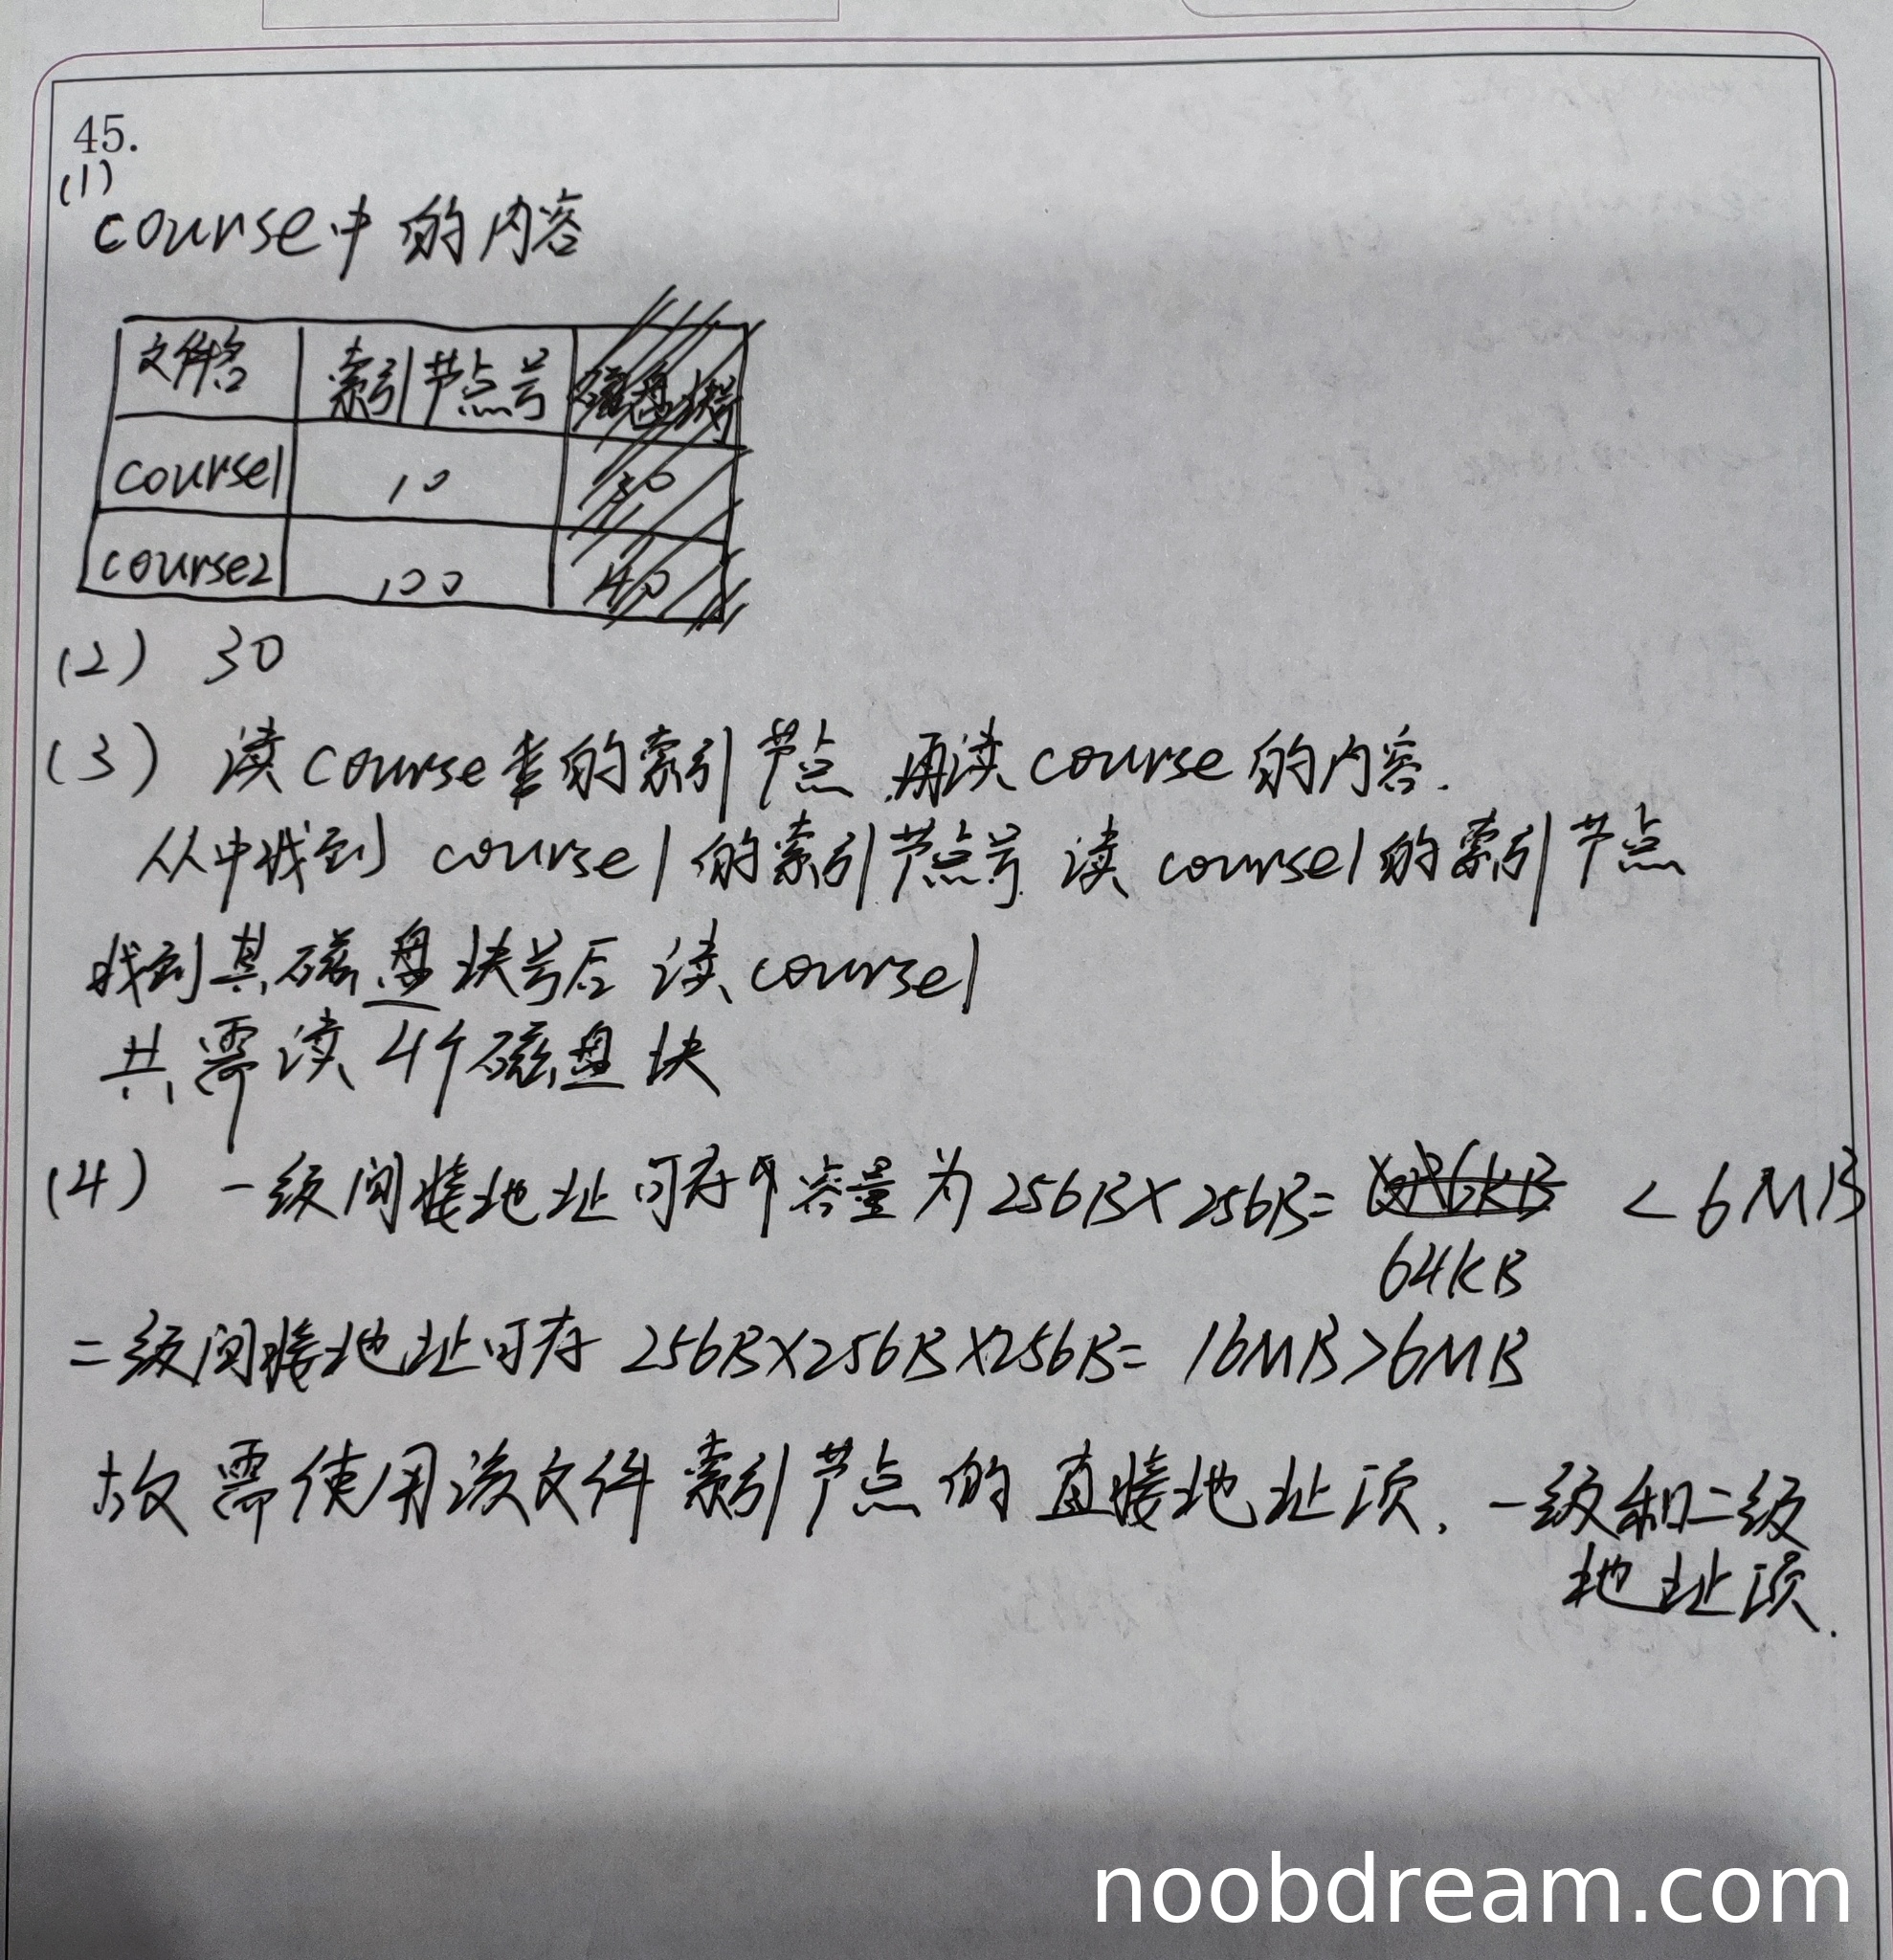 45.
(1)
course中的内容
文件名 索引节点号 磁盘块号
course1 10 30
course2 100 40
(2) 30
(3) 读course的索引节点 再读course的内容.
从中找到 course1的索引节点号 读 course1的索引节点
找到其磁盘块号后 读course1
共需读4个磁盘块
(4) 一级间接地址可存容量为256B×256B= < 6MB
64KB
二级间接地址可存 256B×256B×256B= 16MB>6MB
故需使用该文件索引节点的直接地址项. 一级和二级
地址项.
noobdream.com